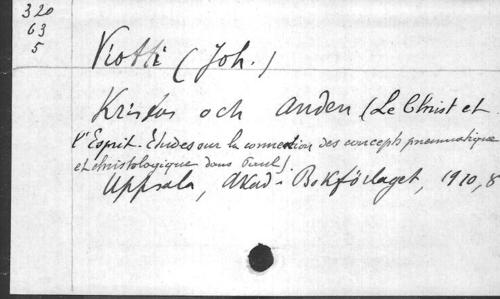 320
63
5
Viotti (Joh.)
Kristus och Anden (Le Christ et
l'Esprit. Etudes sur la connection des concepts pneumatique
et christologique dans Paul)
Uppsala, Akad. Bokförlaget, 1910, 8